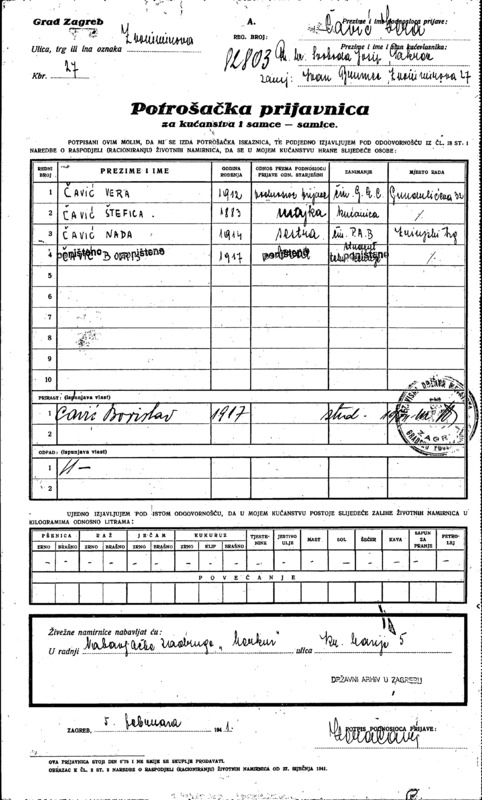 Grad Zagreb
Zvonimirova
Ulica, trg ili ina oznaka
Kbr. 27
A.
REG. BROJ:
Prezime i ime podnosioca prijave:
Čavić Vera
Prezime i ime i stan kućevlasnika:
Svoboda Josip
Zvonimirova 27
Potrošačka prijavnica
za kućanstva i samce — samice.
POTPISANI OVIM MOLIM, DA MI SE IZDA POTROŠAČKA ISKAZNICA, TE PODJEDNO IZJAVLJUJEM POD ODGOVORNOŠĆU IZ ČL. 18 ST. 1
NAREDBE O RASPODJELI (RACIONIRANJU) ŽIVOTNIH NAMIRNICA, DA SE U MOJEM KUĆANSTVU HRANE SLIJEDEĆE OSOBE:
REDNI BROJ PREZIME I IME GODINA ROĐENJA ODNOS PREMA PODNOSIOCU PRIJAVE ODN. STARJEŠINI ZANIMANJE MJESTO RADA
1 ČAVIĆ VERA 1912 podnosioc prijave čin. G.G.C. Gundulićeva
2 ČAVIĆ ŠTEFICA. 1883 majka kućanica /.
3 ČAVIĆ NADA 1914 sestra čin. Z.A.B
4 poništeno poništeno 1917 poništeno student poništeno /.
5
6
7
8
9
10
PRIRAST: (Ispunjava vlast)
1 Čavić Borislav 1917 stud.
2
OTPAD: (Ispunjava vlast)
1
2
UJEDNO IZJAVLJUJEM POD ISTOM ODGOVORNOŠĆU, DA U MOJEM KUĆANSTVU POSTOJE SLIJEDEĆE ZALIHE ŽIVOTNIH NAMIRNICA U
KILOGRAMIMA ODNOSNO LITRAMA:
PŠENICA RAŽ JEČAM KUKURUZ TJESTENINE JESTIVO ULJE MAST SOL ŠEĆER KAVA SAPUN ZA PRANJE PETROLEJ
ZRNO BRAŠNO ZRNO BRAŠNO ZRNO BRAŠNO ZRNO KLIP BRAŠNO
- - - - - - - - - - - - - - - - -
POVEĆANJE
Živežne namirnice nabavljat ću:
U radnji Nabavljačke zadruge „Merkur" ulica 5
DRŽAVNI ARHIV U ZAGREBU
ZAGREB, 5. februara 194 1.
POTPIS PODNOSIOCA PRIJAVE:
OVA PRIJAVNICA STOJI DIN 0'75 I NE SMIJE SE SKUPLJE PRODAVATI.
OBRAZAC K ČL. 2 ST. 2 NAREDBE O RASPODJELI (RACIONIRANJU) ŽIVOTNIH NAMIRNICA OD 27. SIJEČNJA 1941.